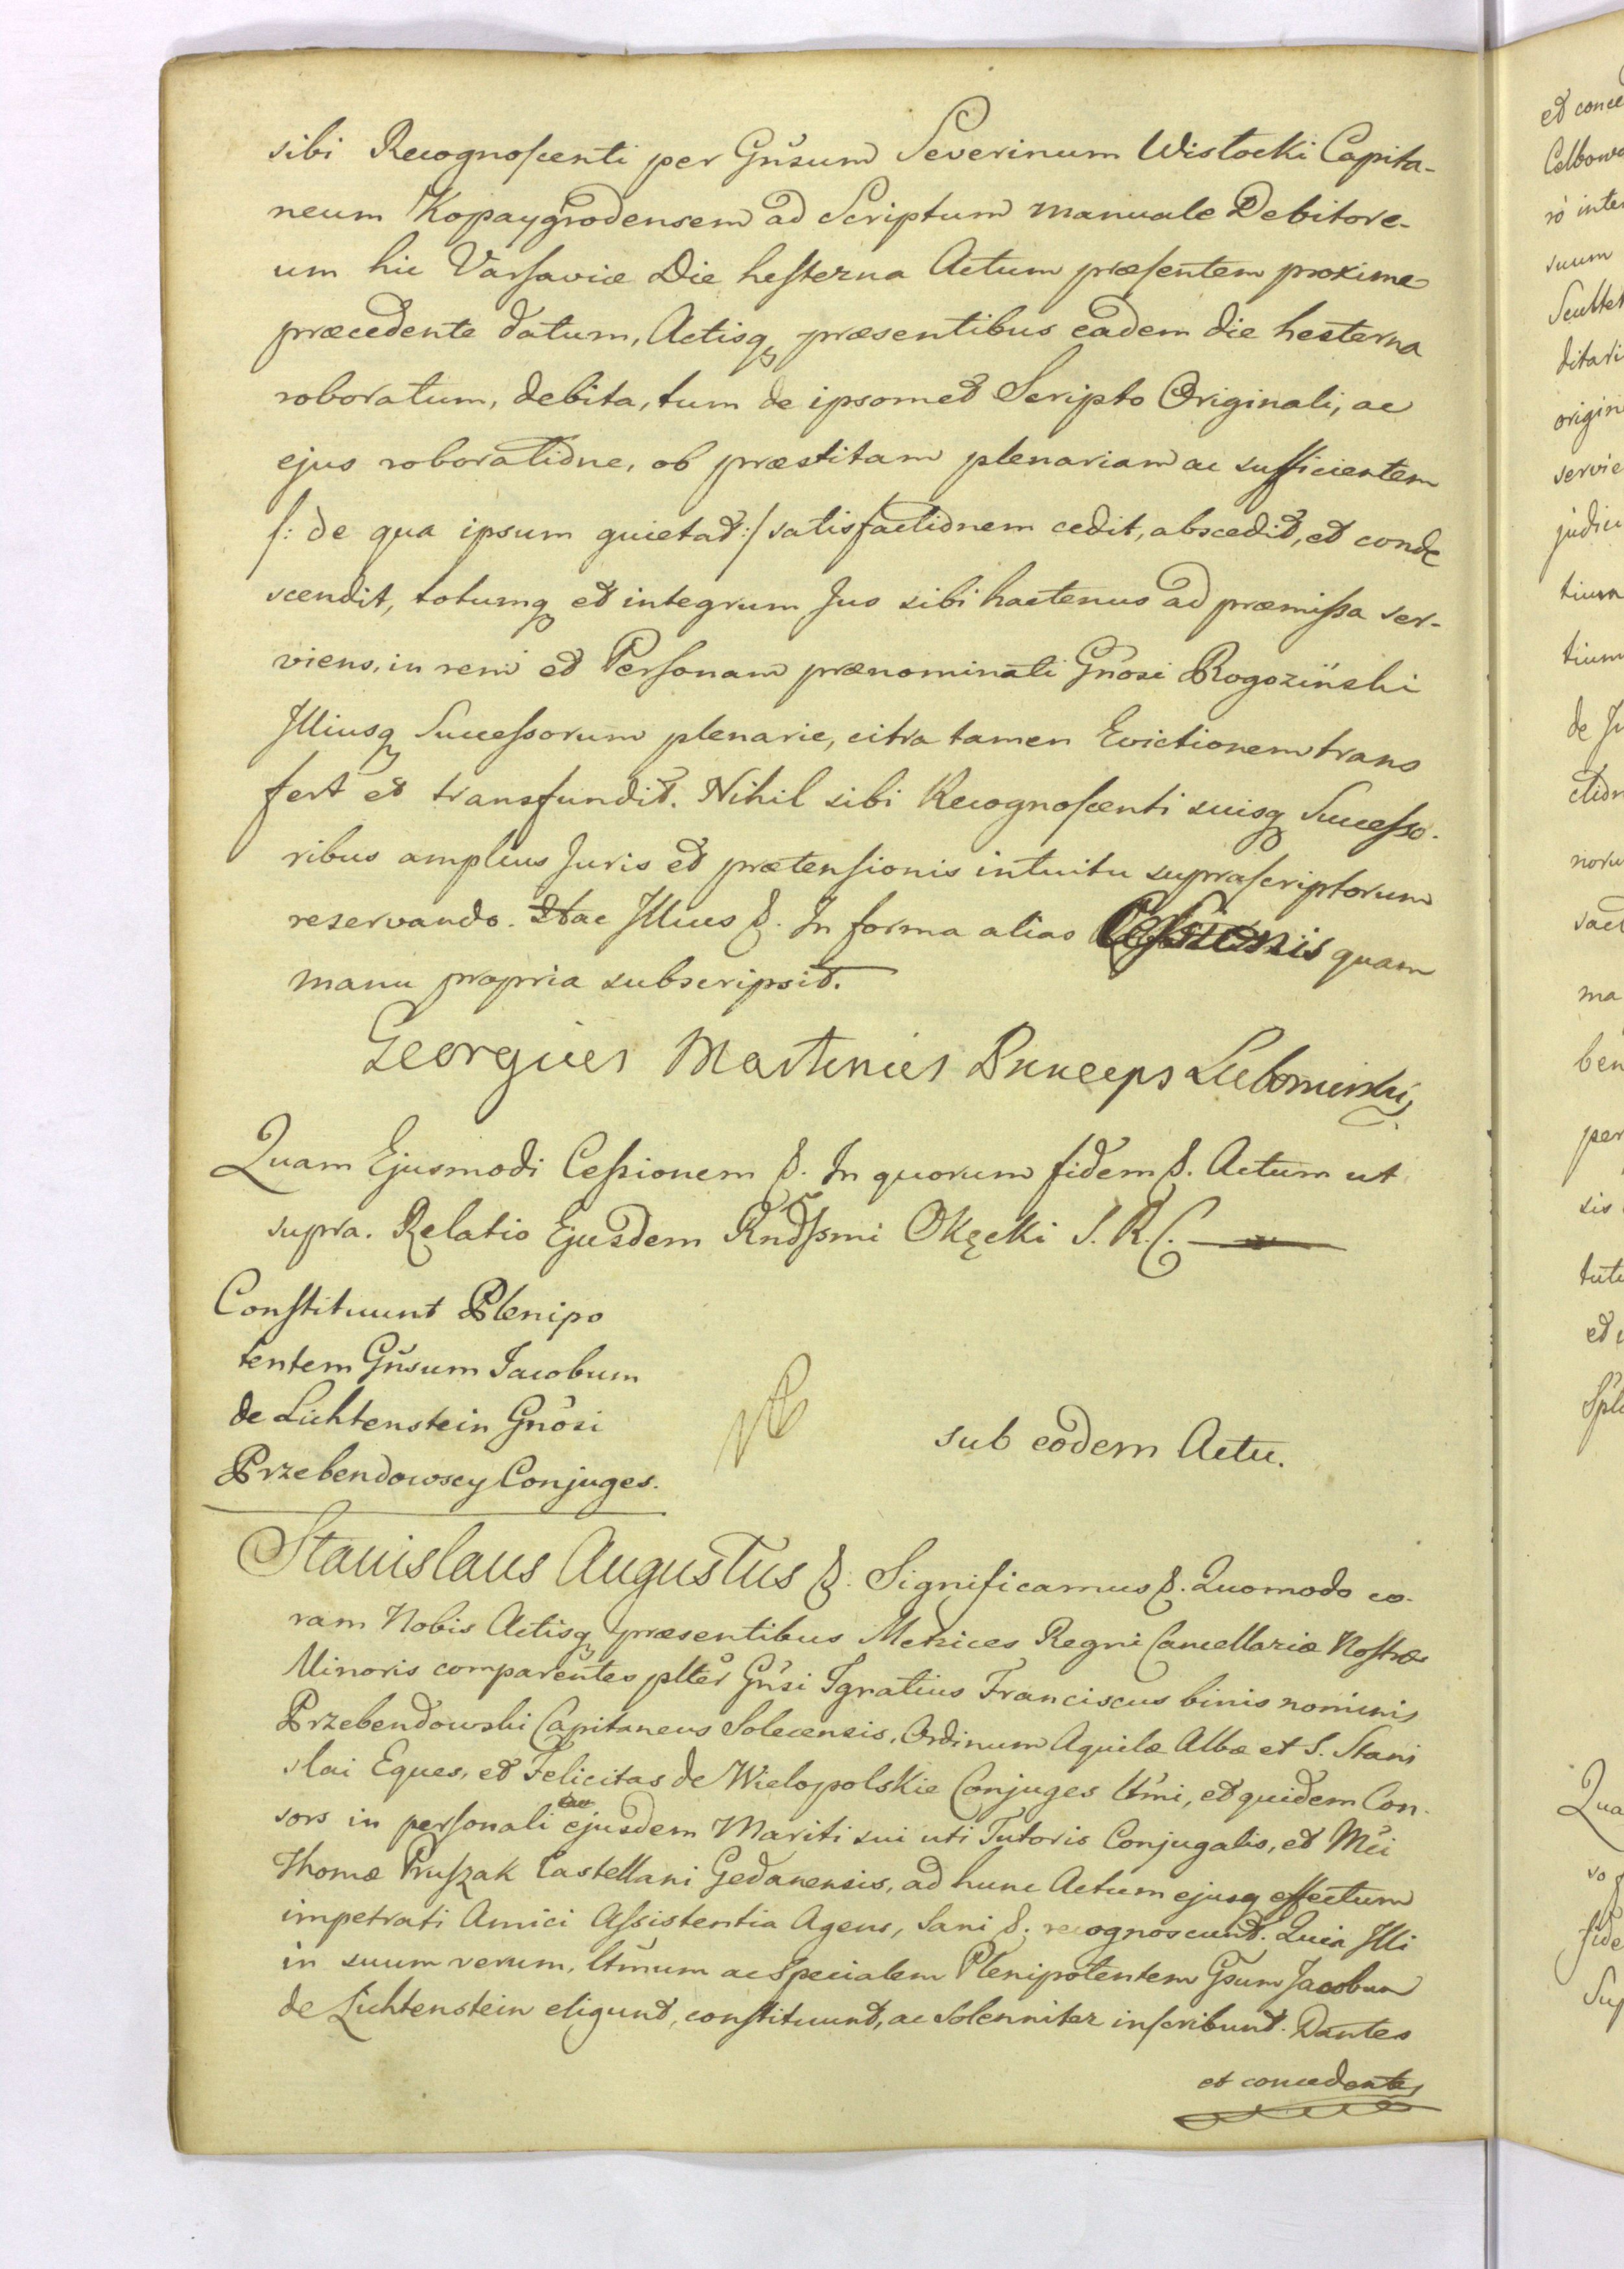 sibi Recognoscenti per Gñsum Severinum Wisłocki Capita-
neum Kopaygrodensem ad Scriptum manuale Debitore-
um hic Varsaviæ Die hesterna Actum præsentem proxime
præcedente datum, Actisq præsentibus eadem die hesterna
roboratum, debita, tum de ipsomet Scripto Originali, ac
ejus roboratione, ob præstitam plenariam ac sufficientem
/: de qua ipsum quietat :/ satisfactionem cedit, abscedit, et conde
scendit, totumq et integrum Jus sibi hactenus ad præmissa ser-
viens, in rem et Personam prænominati Gñosi Rogoziński
Illiusq Successorum plenarie, citra tamen Evictionem trans
fert et transfundit. Nihil sibi Recognoscenti suisq Successo-
ribus amplius Juris et prætensionis intuitu suprascriptorum
reservando. Hac Illius &. In forma alias Cessionis quam
manu propria subscripsit.
Georgius Martinus Princeps Lubomirski
Quam Ejusmodi Cessionem &. In quorum fidem &. Actum ut
supra. Relatio Ejusdem Rndssmi Okęcki S. R. C.
Constituunt Plenipo
tentem Gñsum Jacobum
de Lichtenstein Gñosi
Przebendowscy Conjuges.
sub eodem Actu.
Stanislaus Augustus &. Significamus &. Quomodo co-
ram Nobis Actisq præsentibus Metrices Regni Cancellariæ Nostræ
Minoris comparentes plter Gñsi Ignatius Franciscus binis nominis
Przebendowski Capitaneus Solecensis, Ordinum Aquilæ Albæ et S. Stani
slai Eques, et Felicitas de Wielopolskie Conjuges ltmi, et quidem Con-
sors in personali ejusdem Mariti sui uti Tutoris Conjugalis, et Mci
Thomæ Pruszak Castellani Gedanensis, ad hunc Actum ejusq effectum
impetrati Amici Assistentia Agens, Sani &. recognoscunt. Quia Illi
in suum verum, ltmum ac specialem Plenipotentem Gsum Jacobum
de Lichtenstein eligunt, constituunt, ac solenniter inscribunt. Dantes
et concedentes